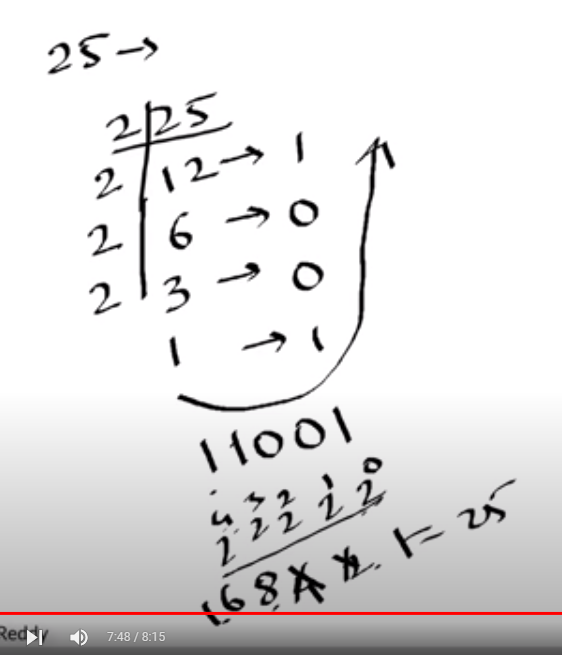 25 →
2 | 25
2 | 12 → 1
2 | 6 → 0
2 | 3 → 0
1 → 1
11001
4 3 2 1 0
2 2 2 2 2
16 8 4 2 1 = 25
Reddy
7:48 / 8:15